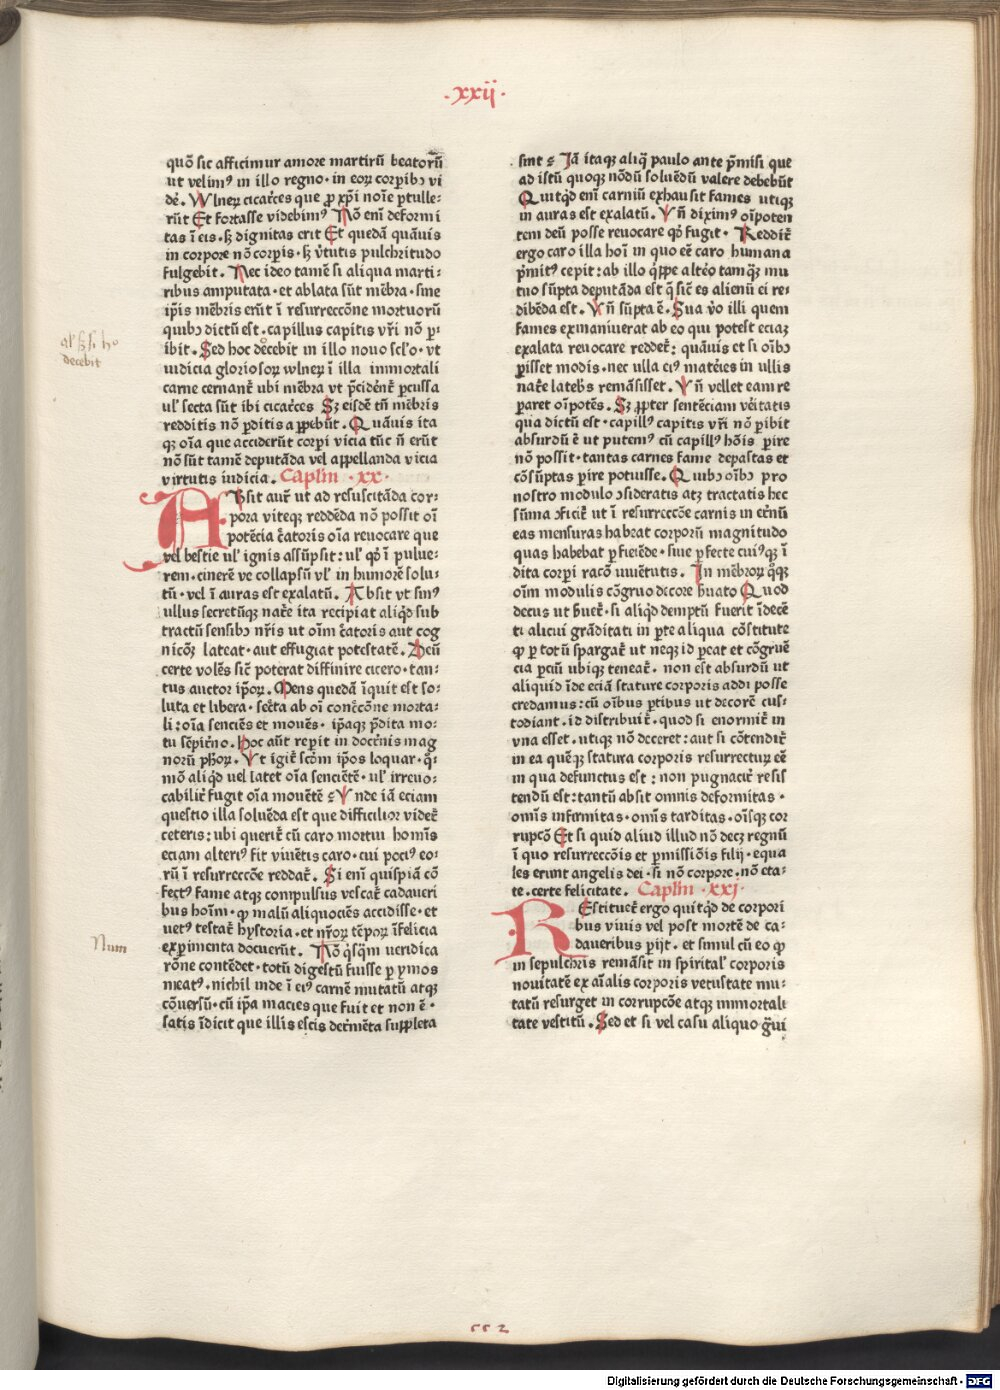 .xxij.
quō sic afficimur amore martirū beatorū
ut velimꝰ in illo regno·in eoꝝ corꝑibꝫ vi
dē. Wlneꝝ cicatͥces que ꝓ xp̄i noīe ꝑtulle-
rūt Et fortasse videbimꝰ Nō enī deformi
tas ī eis·sꝫ dignitas erit Et quedā quāuis
in corpore nō corpis·sꝫ v̄tutis pulchritudo
fulgebit. Nec ideo tamē si aliqua marti-
ribus amputata·et ablata sūt mēbra·sine
ip̄is mēbris erūt ī resurreccōne mortuorū
quibꝫ dictū est·capillus capitis vr̄i nō ꝑ-
ibit. Sed hoc decebit in illo nouo scl̄o·vt
iudicia glorioſoꝝ wlneꝝ ī illa immortali
carne cernant᷑ ubi mēbra vt p̄cident᷑ ꝑcussa
ul' secta sūt ibi cicatͥces Sꝫ eisdē tn̄ mēbris
redditis nō ꝑditis apꝑebūt. Quāuis ita
qꝫ oīa que acciderūt corꝑi vicia tūc n̄ erūt
nō sūt tamē deputāda vel appellanda vicia
virtutis iudicia. Caplm̄ ·xx·
ABsit aut᷑ ut ad resuscitāda cor-
pora viteqꝫ reddēda nō possit oī
potēcia c̄atoris oīa reuocare que
vel bestie ul' ignis assūpsit:ul' qd̓ ī pulue-
rem·cinerē ve collapsū vl' in humorē solu-
tū·vel ī auras est exalatū. Absit vt sinꝰ
ullus secretūqꝫ nat᷑e ita recipiat aliqͥd sub
tractū sensibꝫ nr̄is ut oīm c̄atoris aut cog
nicōꝫ lateat·aut effugiat potestatē. Deū
certe volēs sic̄ poterat diffinire cicero·tan-
tus auctor ip̄oꝝ. Mens quedā īquit est so-
luta et libera·secͬta ab oī concͬcōne morta-
li:oīa senciēs et mouēs·ip̄aqꝫ p̄dita mo-
tu sēpit᷑no. Hoc aūt reꝑit in doct᷑nis mag
norū ph̄oꝝ. Vt igit᷑ scd̄m ip̄os loquar·qͦ-
mō aliqͥd uel latet oīa senciētē·ul' irreuo-
cabilit᷑ fugit oīa mouētē ꝛ Vnde iā eciam
questio illa soluēda est que difficilior videt᷑
ceteris:ubi querit᷑ cū caro mortui homīs
eciam alterꝰ fit viuētis caro·cui pociꝰ eo-
rū ī resurreccōe reddat᷑. Si enī quispiā cō
fectꝰ fame atqꝫ compulsus vescat᷑ cadaueri
bus hoīm·qd̓ malū aliquociēs accidisse·et
uetꝰ testat᷑ hystoria·et nr̄oꝝ tēpoꝝ īfelicia
exꝑimenta docuerūt. Nō qͥsqͣm ueridica
rōne contēdet·totū digestū fuisse ꝑ ymos
meatꝰ·nichil inde ī eiꝰ carnē mutatū atqꝫ
cōuersū·cū ip̄a macies que fuit et non ē·
satis īdicit que illis escis det᷑mēta suppleta
sint ꝛ Jā itaqꝫ aliqͣ paulo ante p̄misi que
ad istū quoqꝫ nōdū soluēdū valere debebūt
Quitqͥd enī carniū exhausit fames utiqꝫ
in auras est exalatū. Vn̄ diximꝰ oīpoten
tem deū posse reuocare qd̓ fugit· Reddit᷑
ergo caro illa hoī in quo eē caro humana
p̄mitꝰ cepit:ab illo qͥppe altͦeo tamqͣꝫ mu
tuo sūpta deputāda est q̄ sic̄ es alienū ei re-
dibēda est. Vn̄ sūpta ē. Sua v̓o illi quem
fames exinaniuerat ab eo qui potest eciaꝫ
exalata reuocare reddet᷑: quāuis et si oībꝫ
ꝑisset modis·nec ulla eiꝰ matͥes in ullis
nat᷑e latebͥs remāsisset. Vn̄ vellet eam re
paret oīpotēs. Sꝫ ꝓpter sentēciam vͥitatis
qua dictū est·capillꝰ capitis vr̄i nō ꝑibit
absurdū ē ut putemꝰ cū capillꝰ hōis ꝑire
nō possit·tantas carnes fame depastas et
cōsūptas ꝑire potuisse. Quibꝫ oībꝫ pro
nostro modulo ↄsideratis atqꝫ tractatis hec
sūma ↄficit᷑ ut ī resurreccōe carnis in et᷑nū
eas mensuras habeat corporū magnitudo
quas habebat ꝑficiēde·siue ꝑfecte cuiꝰqꝫ ī
dita corꝑi racō iuuētutis. In mēbroꝝ qͦqꝫ
oīm modulis cōgruo decore ẜuato Quod
decus ut ẜuet᷑·si aliqͥd demptū fuerit īdecē
ti alicui grāditati in ꝑte aliqua cōstitute
qd̓ ꝑ totū spargat᷑ ut neqꝫ id ꝑeat et cōgruē
cia ꝑciū ubiqꝫ teneat᷑· non est absurdū ut
aliquid īde eciā stature corporis addi posse
credamus:cū oībus ꝑtibus ut decorē cus-
todiant·id distribuit᷑·quod si enormit᷑ in
vna esset·utiqꝫ nō deceret:aut si cōtendit᷑
in ea quēqꝫ statura corporis resurrecturꝫ eē
in qua defunctus est: non pugnacit᷑ resis
tendū est:tantū absit omnis deformitas·
omīs infirmitas·omīs tarditas·oīsqꝫ cor
rupcō Et si quid aliud illud nō decꝫ regnū
ī quo resurreccōis et ꝑmissiōis filij·equa
les erunt angelis dei·si nō corpore·nō eta-
te·certe felicitate. Caplm̄ ·xxj·
REstituet᷑ ergo quitqͥd de corpori
bus viuis vel post mortē de ca-
daueribus ꝑijt·et simul cū eo qd̓
in sepulchris remāsit in spirital' corporis
nouitatē ex aīalis corporis vetustate mu-
tatū resurget in corrupcōe atqꝫ immortali
tate vestitū. Sed et si vel casu aliquo gͣui
al' sꝫ si hͦ
decebit
Num
552
Digitalisierung gefördert durch die Deutsche Forschungsgemeinschaft - DFG